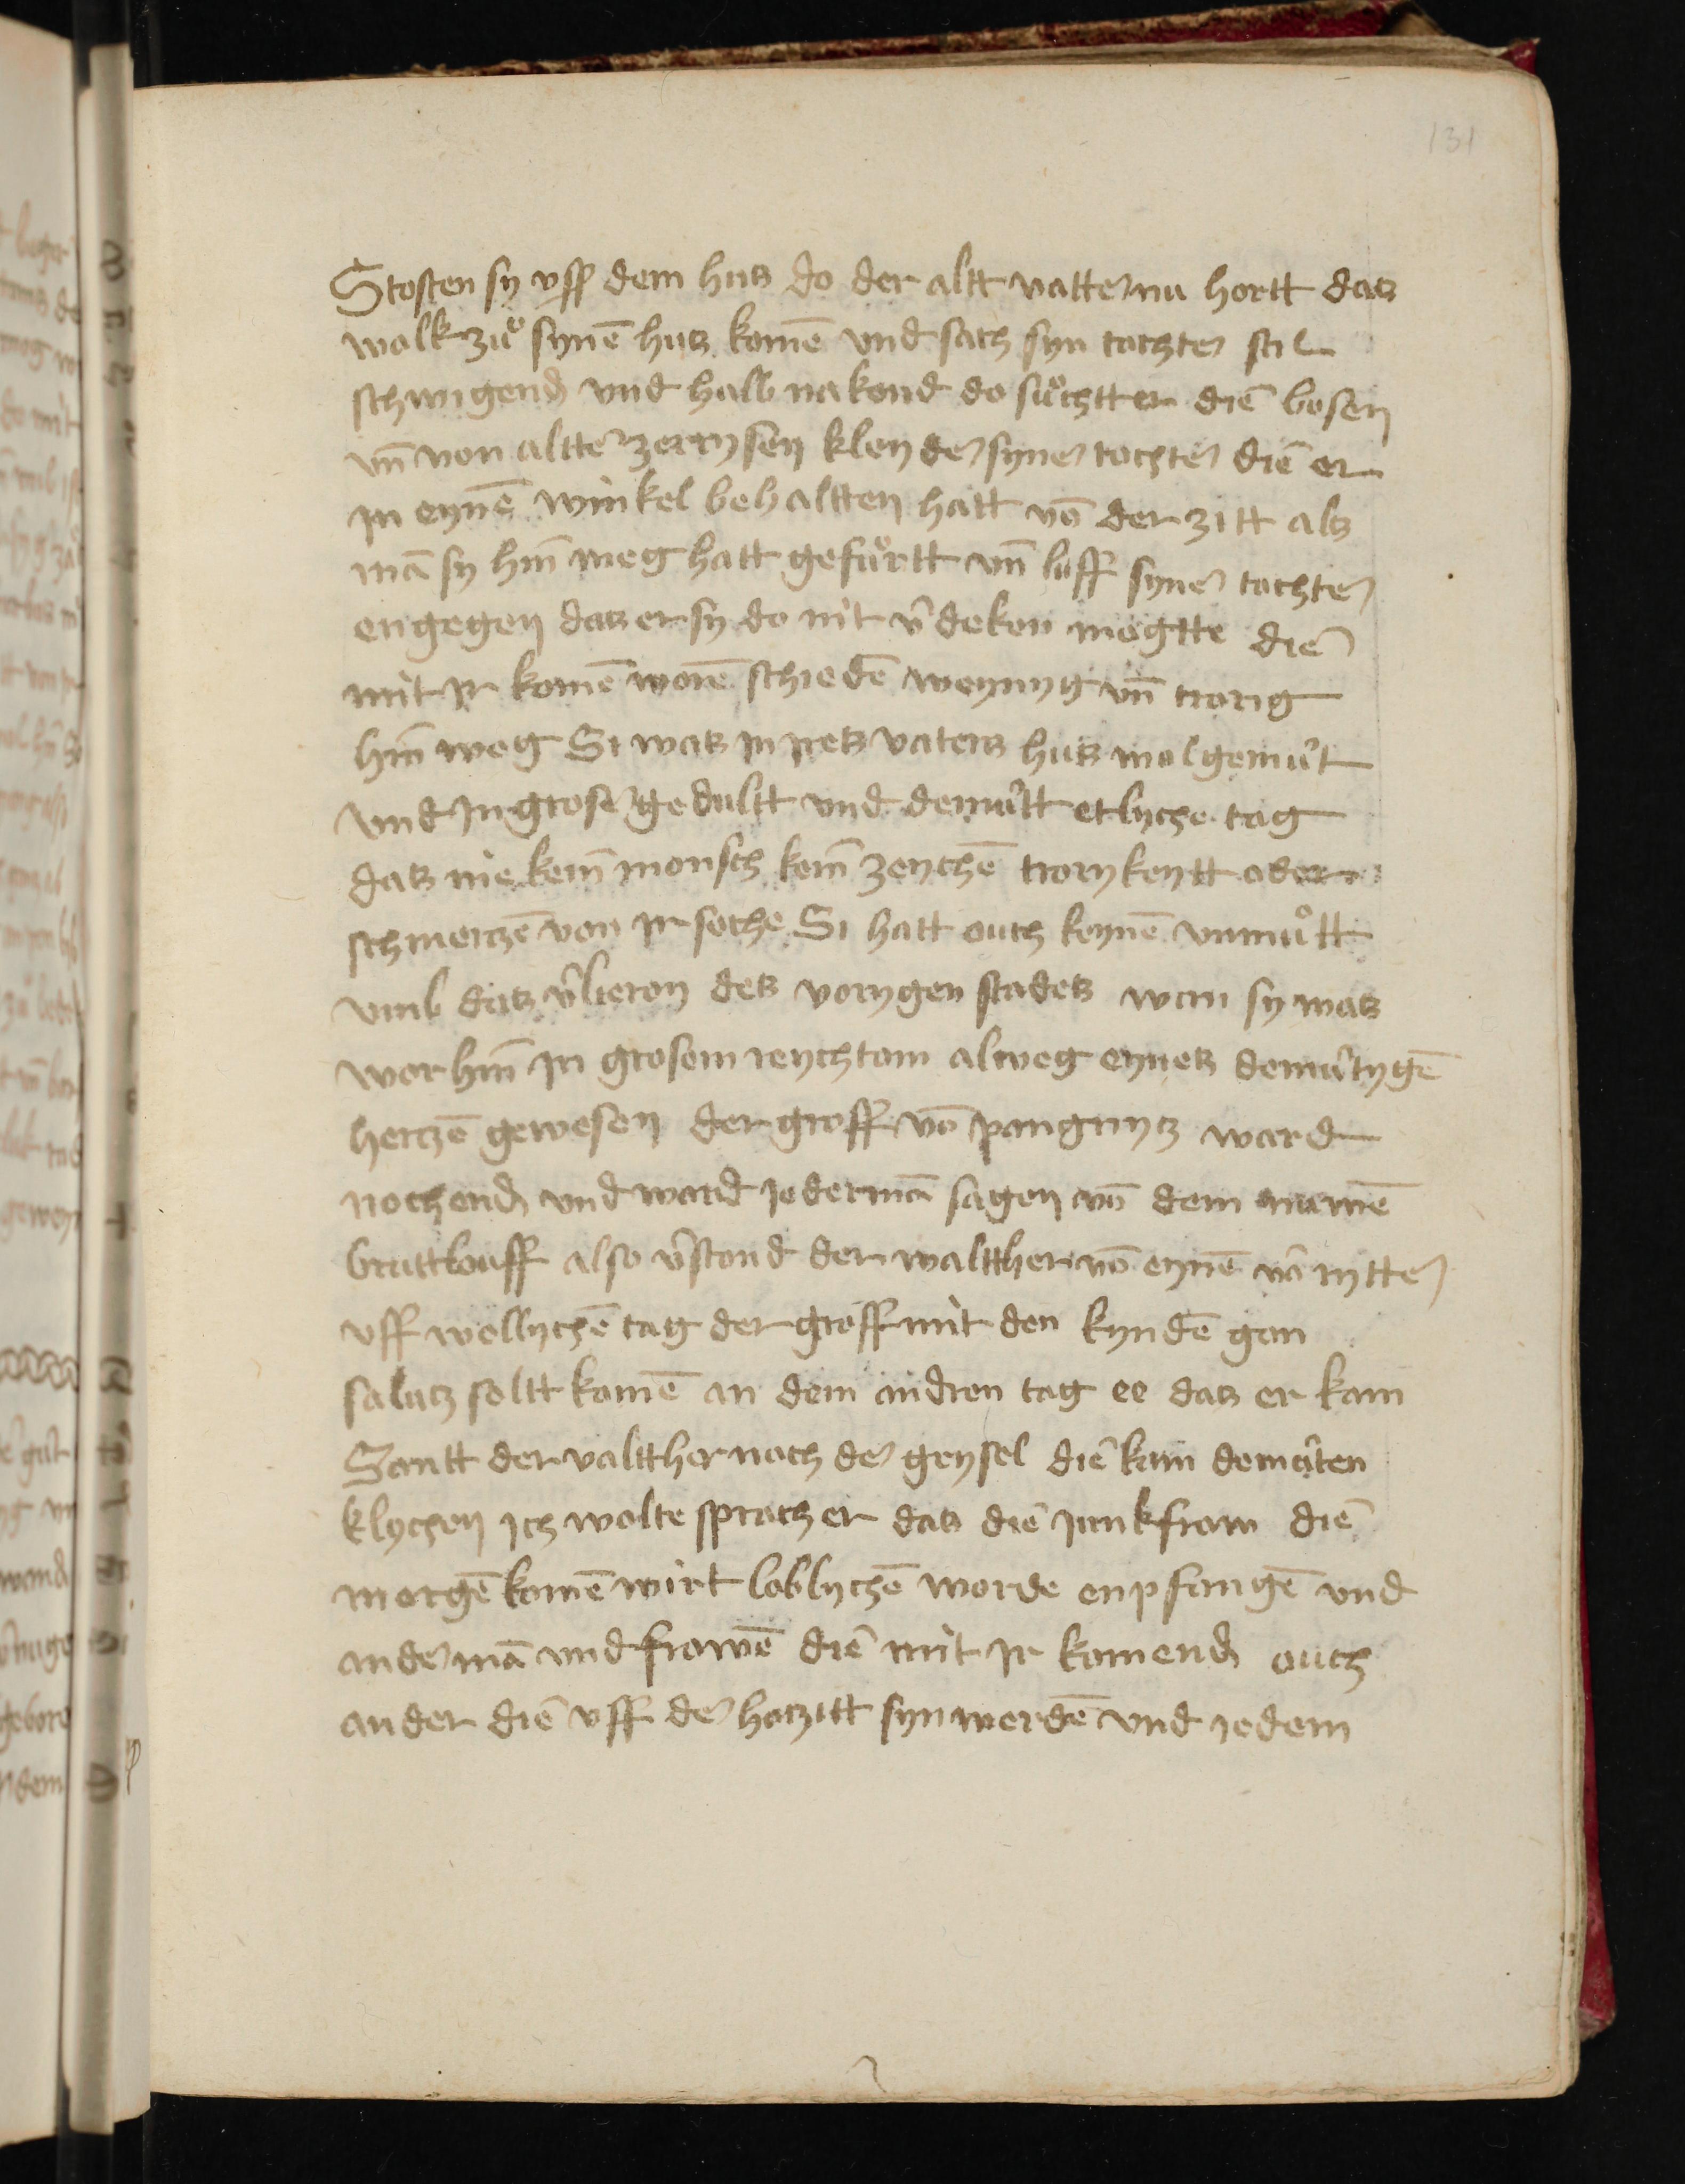 131
Stosten sy vss dem hus do der altt vatter nu hortt das
wolk zuͦ synē hus komē vnd sach syn tochter stil
schwigend vnd halb nakend do suͦchtt er diē bosen
vn̄ von altter zerrysen kleyder syner tochter diē er
jn eynē winkel behaltten hatt vō der zitt als
mā sy hin̄ weg hatt gefuͦrtt vn̄ luff syner tochter
engegen das er sy do mit v̄deken mogtte die
mit jr komē worē schiedē weynyg vn̄ trorig
hin̄ weg Si was jn jres vaters hus wolgemuͦt
vnd jn groser gedultt vnd demuͦtt etlyche tag
das nie kein̄ monsch kein̄ zeychē trorykeytt oder
schmertzē von jr soche Si hatt ouch keynē vnmuͦtt
vmb das v̄lieren des vorygen stades wan sy was
vor hin̄ jn grosem reychtom alweg eynes demuͦtygē
hertzē gewesen der groff vō pangnytz ward
nochend vnd ward jedermā sagen vō dem nuwē
bruttlouff also v̄stond der waltther vō eynē vō rytter
vff wellychē tag der groff mit den kyndē gan
salutz soltt komē an dem andren tag ee das er kam
Santt der valtther noch der grysel diē kam demuͦten
klychen jch wolte sproch er das diē junkfraw diē
morgē komē wirt loblychē worde enpfangē vnd
ander mā vnd frowē diē mit jr komend ouch
ander diē vff der hoczitt syn werdē vnd jedem